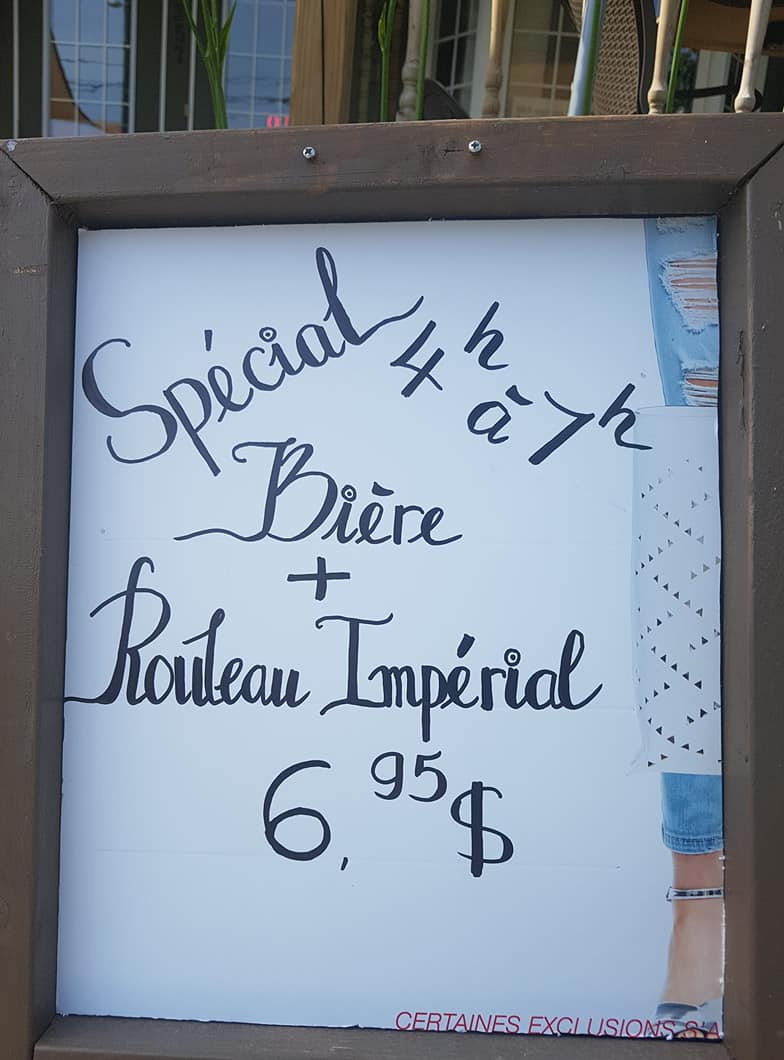 Spécial 4h
à 7h
Bière
+
Rouleau Impérial
6,95$
CERTAINES EXCLUSIONS S'A